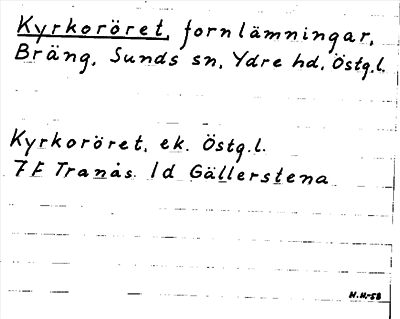 Kyrkoröret, fornlämningar,
Bräng, Sunds sn, Ydre hd, Östg.l.
Kyrkoröret, ek. Östg.l.
7F Tranås 1d Gällerstena
H.H.-58